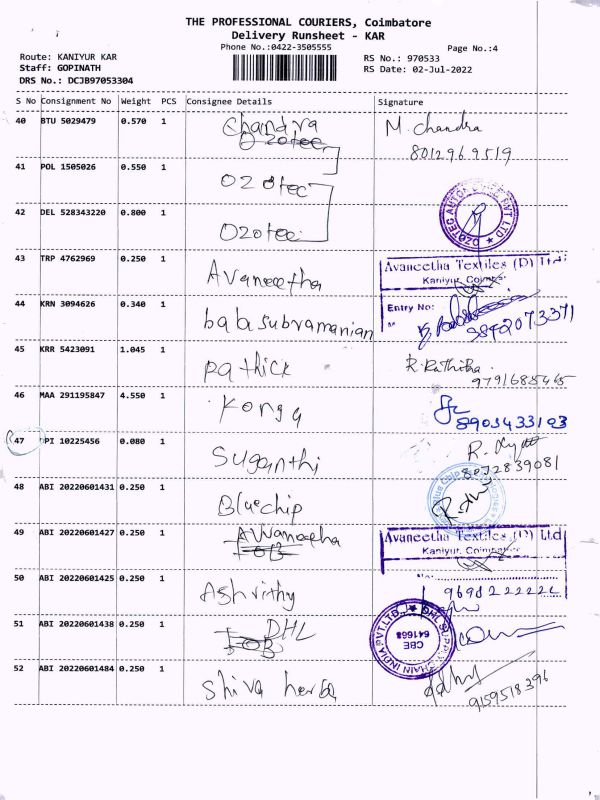 THE PROFESSIONAL COURIERS, Coimbatore
Delivery Runsheet - KAR
Phone No.:0422-3505555
Page No.:4
Route: KANIYUR KAR
Staff: GOPINATH
DRS No.: DCJB97053304
RS No.: 970533
RS Date: 02-Jul-2022
S No Consignment No Weight PCS Consignee Details Signature
40 BTU 5029479 0.570 1 Chandra M. Chandra
Ozotec 8012969519
41 POL 1505026 0.550 1 Ozotec
42 DEL 528343220 0.800 1 Ozotec
OZOTEC AUTO PVT LTD
43 TRP 4762969 0.250 1 Avaneetha
Avaneetha Textiles (P) Ltd.
Kaniyur, Coimbatore
44 KRN 3094626 0.340 1 balasubramanian
Entry No:
9842073371
45 KRR 5423091 1.045 1 Pathick R. Rathika
9791685465
46 MAA 291195847 4.550 1 Konga
8903433103
47 OPI 10225456 0.080 1 Suganthi
8072839081
48 ABI 20220601431 0.250 1 Bluechip
49 ABI 20220601427 0.250 1 Avvaneetha
Avaneetha Textiles (P) Ltd
Kaniyur, Coimbatore
50 ABI 20220601425 0.250 1 Ashrithy
No:
9698222222
51 ABI 20220601438 0.250 1 DHL
DHL SUPPLY CHAIN INDIA PVT.LTD.
CBE
641668
52 ABI 20220601484 0.250 1 Shiva herba
9159518396